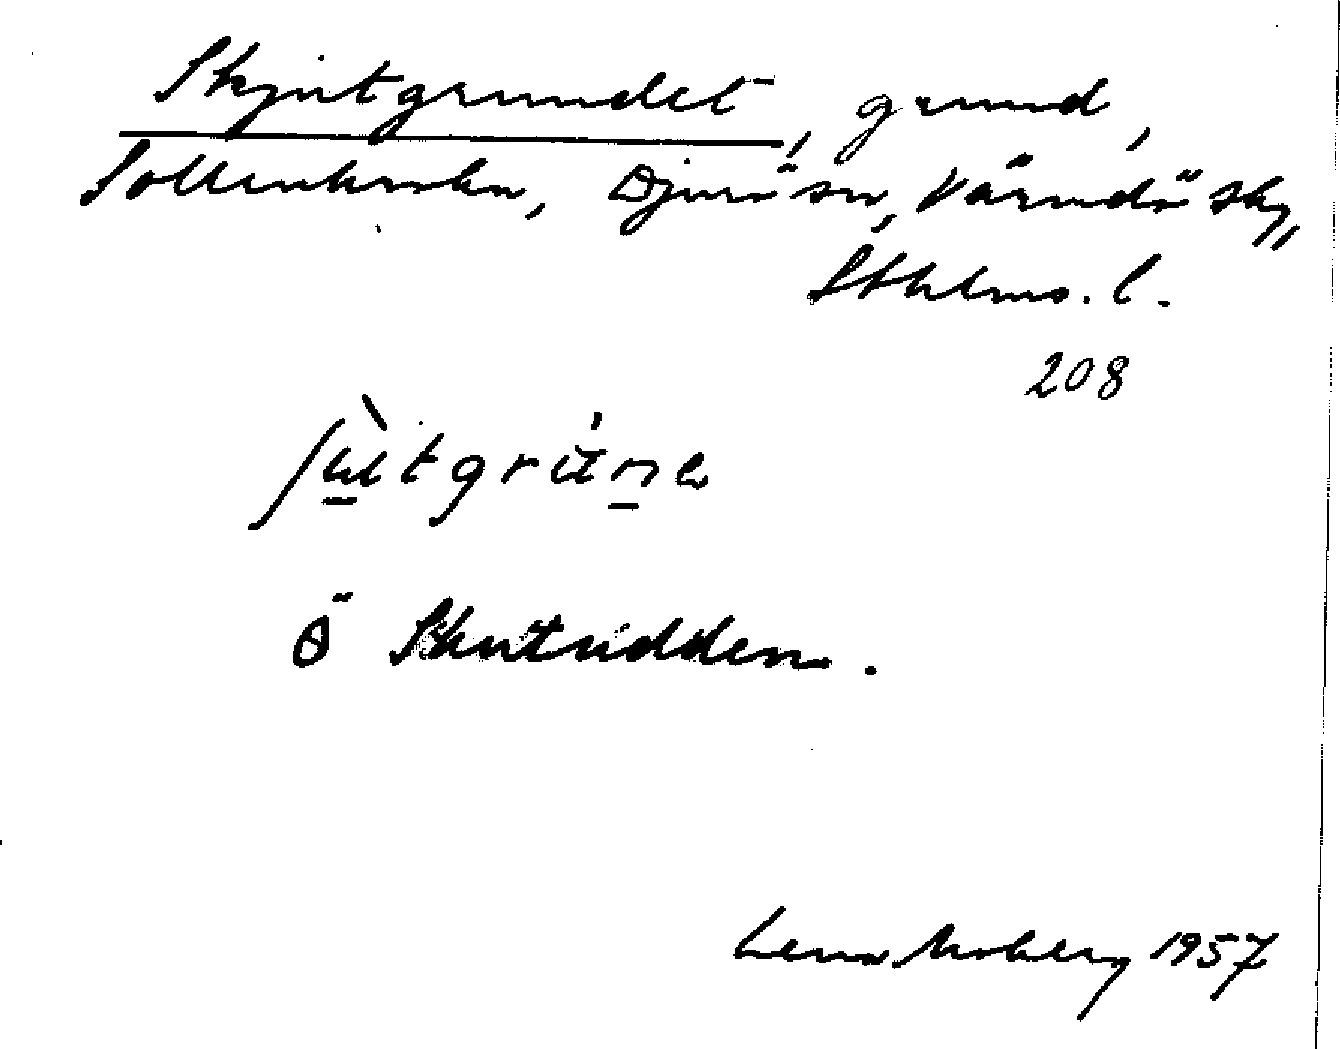 Skjutgrundet, grund,
Sollenkroka, Djurö sn, Värmdö sky,
Sthlms. l.
208
ʃùtgrúnе
Ö Skutudden.
Lena Moberg 1957